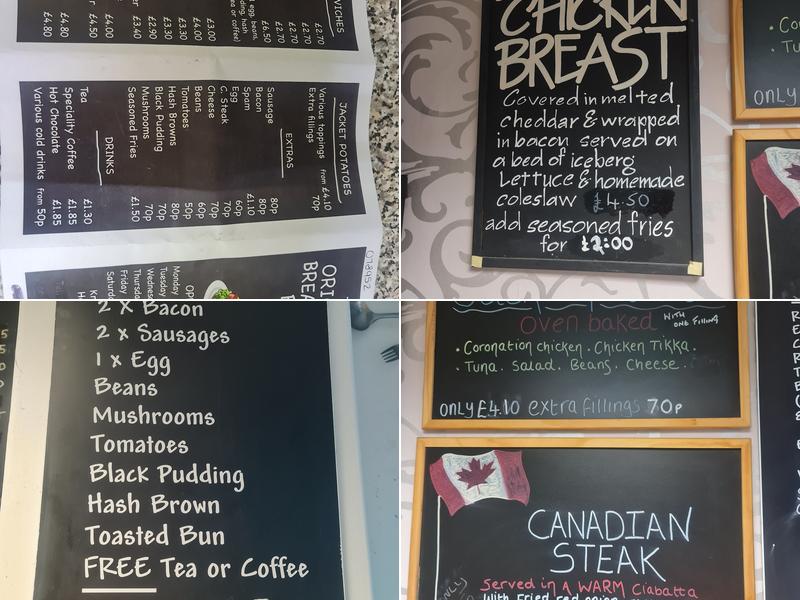 WICHES
£2.70
£2.70
£2.70
£6.50
egg, beans,
or coffee)
£3.00
£4.00
£3.30
£3.30
£2.90
£3.40
£4.50
£4.00
£4.80
£4.80
JACKET POTATOES
Various toppings from £4.10
Extra fillings 70p
EXTRAS
Sausage 80p
Bacon 80p
Spam £1.10
Egg 60p
C. Steak
Cheese 60p
Beans 50p
Tomatoes 50p
Hash Browns 80p
Black Pudding 70p
Mushrooms 70p
Seasoned Fries £1.50
DRINKS
Tea £1.30
Speciality Coffee £1.85
Hot Chocolate £1.85
Various cold drinks from 50p
078452
ORI
BREA
Monday
Tuesday
Wednes
Thursda
Friday
Saturda
CHICKEN
BREAST
Covered in melted
cheddar & wrapped
in bacon served on
a bed of iceberg
Lettuce & homemade
coleslaw £4.50
add seasoned fries
for £2:00
• Co
• Tu
ONLY
2 x Bacon
2 x Sausages
1 x Egg
Beans
Mushrooms
Tomatoes
Black Pudding
Hash Brown
Toasted Bun
FREE Tea or Coffee
oven baked WITH ONE FILLING
• Coronation chicken . Chicken Tikka .
• Tuna . Salad . Beans . Cheese .
ONLY £4.10 extra fillings 70p
CANADIAN
STEAK
Served in A WARM Ciabatta
With Fried red onion